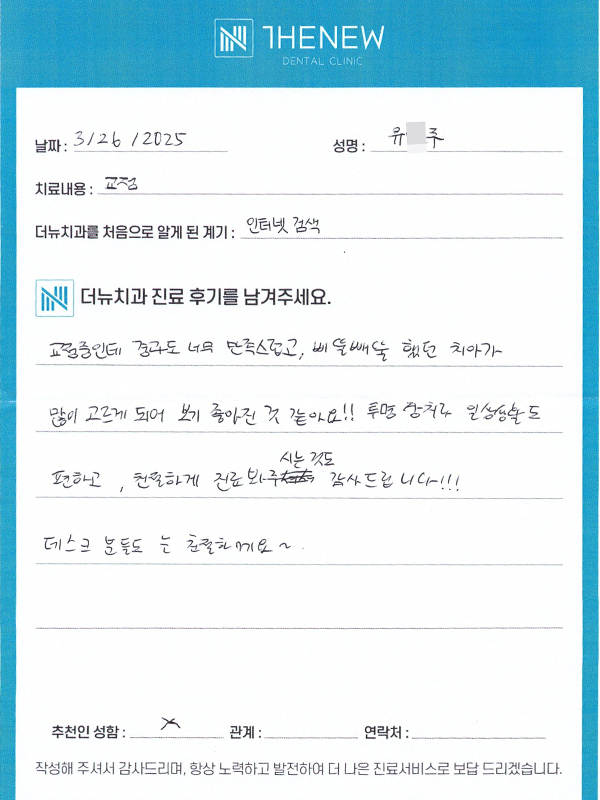 THENEW
DENTAL CLINIC
날짜 : 3/26/2025 성명 : 유 주
치료내용 : 교정
더뉴치과를 처음으로 알게 된 계기 : 인터넷 검색
더뉴치과 진료 후기를 남겨주세요.
교정중인데 결과도 너무 만족스럽고, 삐뚤빼뚤 했던 치아가
많이 고르게 되어 보기 좋아진 것 같아요!! 투명 장치라 일상생활도
시는 것도
편하고, 친절하게 진료 봐주 감사드립니다!!!
데스크 분들도 친절하세요~.
추천인 성함 : X 관계 : 연락처 :
작성해 주셔서 감사드리며, 항상 노력하고 발전하여 더 나은 진료서비스로 보답 드리겠습니다.